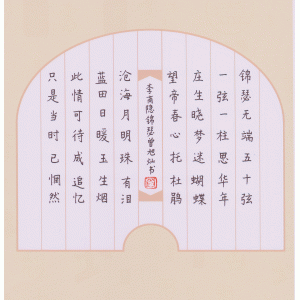 锦瑟无端五十弦
一弦一柱思华年
庄生晓梦迷蝴蝶
望帝春心托杜鹃
李商隐锦瑟曾旭灿书
沧海月明珠有泪
蓝田日暖玉生烟
此情可待成追忆
只是当时已惘然